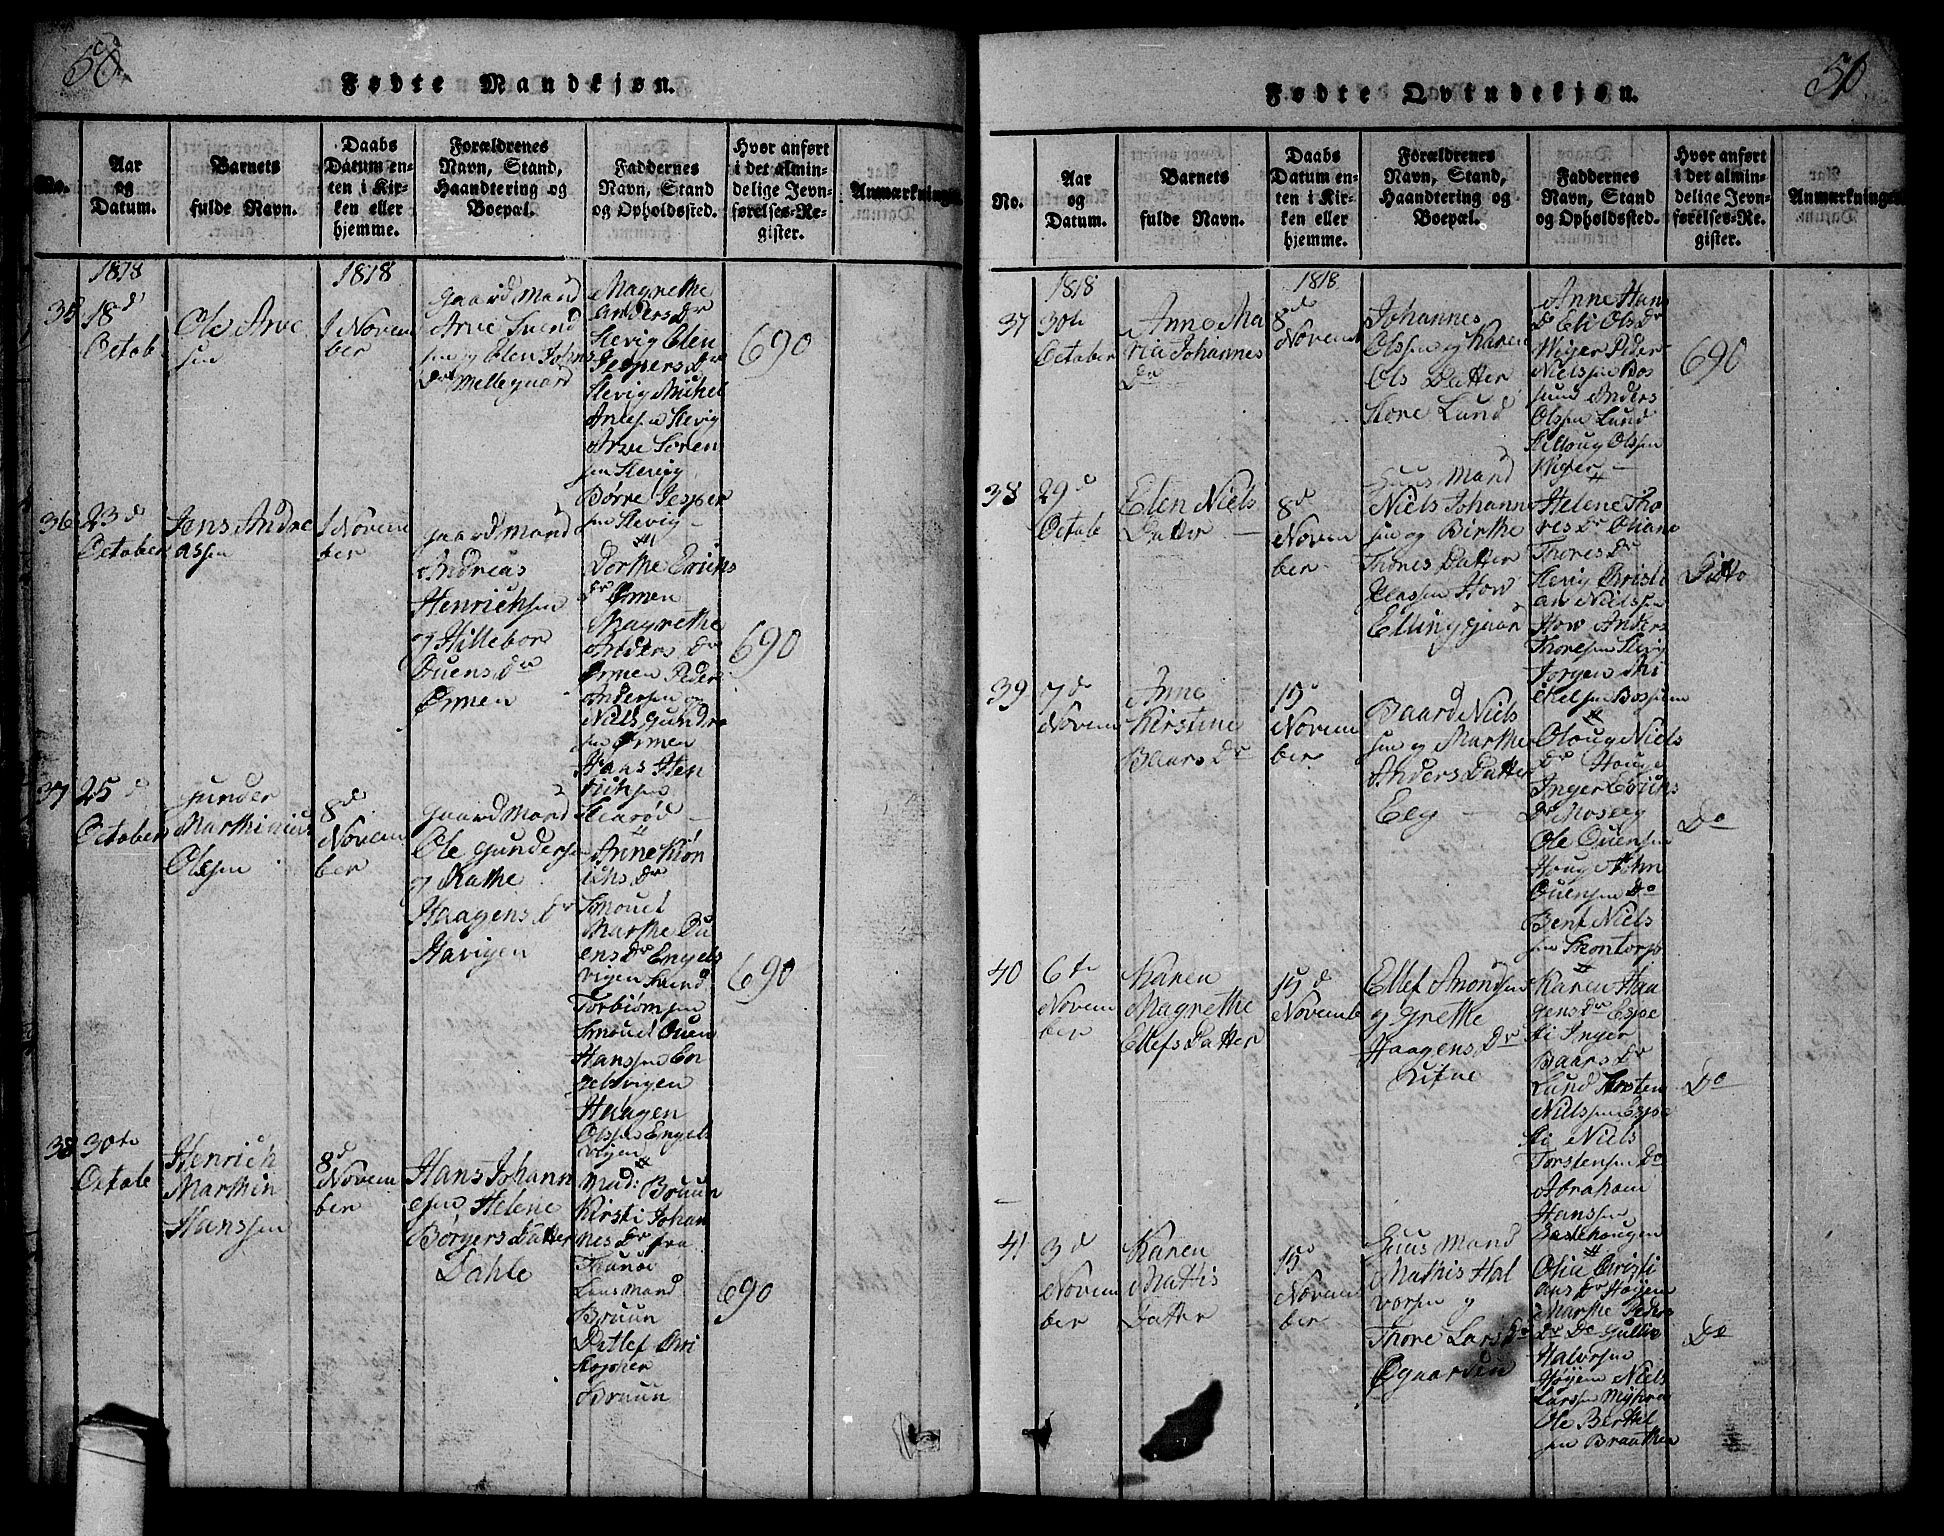 50
Fødte Mandkjøn.
No.
Aar
og
Datum.
Barnets
fulde Navn.
Daabs
Datum en-
ten i Kir-
ken eller
hjemme.
Forældrenes
Navn, Stand,
Haandtering og
Boepæl.
Faddernes
Navn, Stand
og Opholdssted.
Hvor anført
i det almin-
delige Jevn-
førelses-Re-
gister.
Anmærkninger.
1818
1818
35
18d
October
Ole Arve
sen
1 Novem
ber
gaardMand
Arve Svend
sen og Elen Johns
Datt Mellegaard
Magrethe
Anders Dr
Slevig Elen
Jespers Dr
Slevig Michel
Anlsen Slevig
Arve Sören
sen Slevig
Børre Jesper
sen Slevig
690
36
23d
October
Jens Andre
assen
1 Novem
ber
gaardMand
Andreas
Henrichsen
og Hillebor
Ouens Dr
Ørmen
Dorthe Erichs
Dr Ørmen
Magrethe
Anders Dr
Ørmen Peder
Andersen og
Niels Gundre
sen Ørmen
Haas Hen
richsen
690
37
25d
October
gunder
Marthinius
Olesen
8d
Novem
ber
gaardMand
Ole gundersen
og Kathe
Haagens Dr
Havigen
Anne Kiön
ichs Dr
Smouel
Marthe Ou
ens Dr Engels
vigen Svend
Torbiörnsen
Smouel Ouen
Hanssen En
gelsvigen
Haagen
Olssen Engels
vigen
690
38
30te
October
Henrich
Marthin
Hanssen
8d
Novem
ber
Hans Johann
esen Helene
Børgers Datter
Dahle
Mad: Bruun
Kirsti Johan
nes Dr fra
Thunöe
LensMand
Bruun
Detlef Chri
stopher
Bruun
690
50
Fødte Qvindekjøn.
No.
Aar
og
Datum.
Barnets
fulde Navn.
Daabs
Datum en-
ten i Kir-
ken eller
hjemme.
Forældrenes
Navn, Stand,
Haandtering og
Boepæl.
Faddernes
Navn, Stand
og Opholdssted.
Hvor anført
i det almin-
delige Jevn-
førelses-Re-
gister.
Anmærkninger.
1818
1818
37
30te
October
Anne Ma
ria Johannes
Dr
8d
Novemb
Johannes
Olssen og Karen
Ols Datter
Store Lund
Anne Hans
Dr Eli Ols Dr
Wiger Peder
Nielssen Bos
sund Anders
Olssen Lund
Olssen
Wiger
690
38
29d
October
Elen Niels
Datter
8d
Novem
ber
Huus Mand
Niels Johann
sen og Birthe
Thores Datter
How
Ellinggaar
Helene Tho
res Dr Oliane
Thores Dr
Slevig Christi
an Nielssen
How Anders
Thoresen Slevig
Jörgen Mi
chelsen Bossum
Ditto
39
7d
Novem
Anne
Kirstine
Baars Dr
15d
Novem
ber
Baard Niels
sen og Marthe
Anders Datter
Elg
Oloug Niels
Dr Houge
Inger Erichs
Dr Moseby
Ole Ouensen
Houg John
Ouensen Do
Bent Niels
sen Thontorp
Do
40
6te
Novem
ber
Karen
Magrethe
Ellefs Datter
15d
Novemb
Ellef Amondsen
og Grethe
Haagens Dr
Karen Haa
gens Dr Espe
li Inger
Baars Dr
Lund Torsten
Nielssen Espe
li Niels
Torstensen Do
Abraham
Hanssen
Do
41
3d
Novem
ber
Karen
Mathis
Datter
15d
Novem
ber
Huus Mand
Mathis Hal
vorsen og
Thore Lars Dr
Øgaarden
Olia Christi
ans Dr Høyem
Marthe Peders
Dr Do Gullix
Halvorsen
Høyem Niels
Larssen Myhra
Ole Berthel
sen Braathen
Do